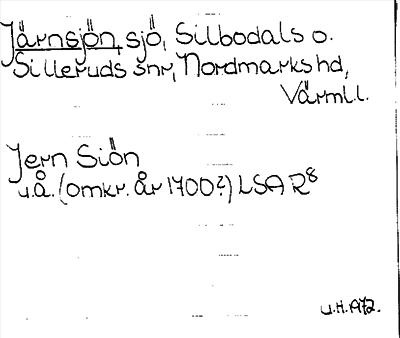 Järnsjön, sjö, Silbodals o.
Silleruds snr, Nordmarks hd,
Värmll.
Jern Siön
u.å. (omkr. år 1700?) LSA R8
U.H. A72.